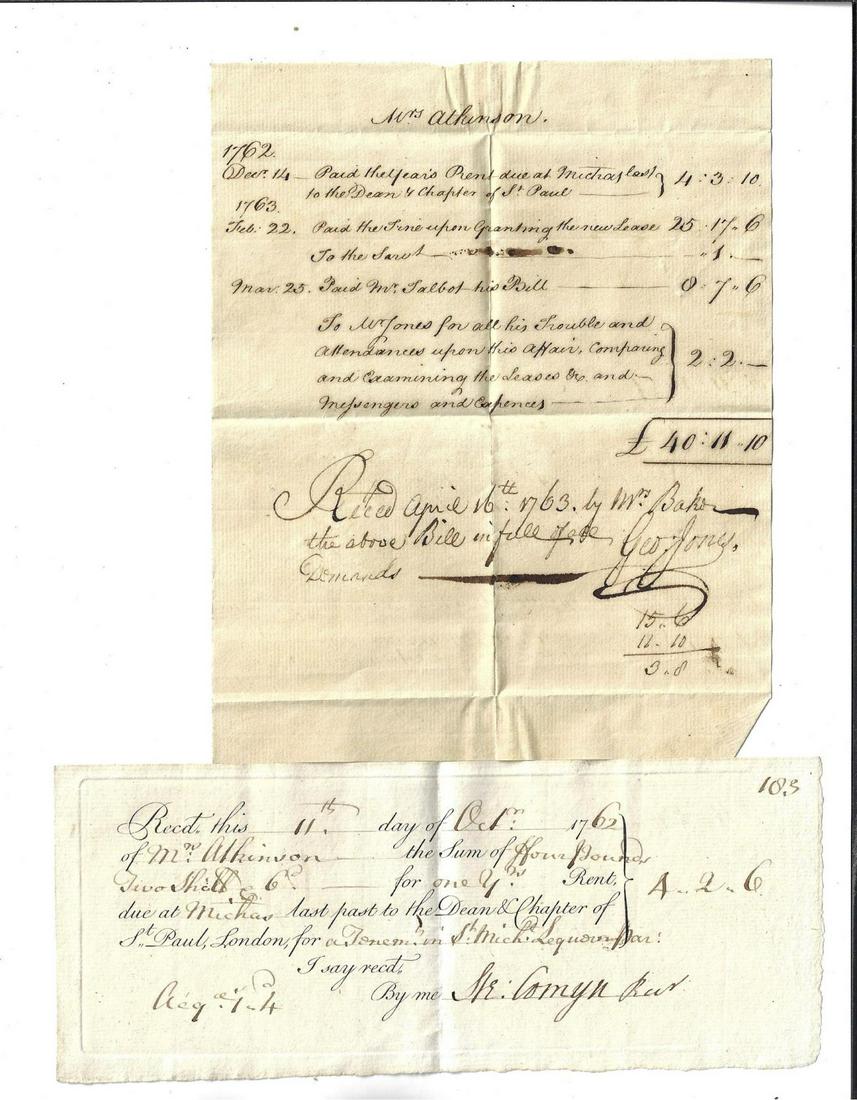 Mrs Atkinson.
1762.
Decr. 14 — Paid the Year's Rent due at Michas last
to the Dean & Chapter of St Paul — 4 : 3 : 10
1763
Feb: 22. Paid the Fine upon Granting the new Lease 25 : 17 " 6
To the Sarvt — " 1 . —
Mar. 25. Paid Mr. Talbot his Bill — 8 : 7 " 6
To Mr Jones for all his Trouble and
Attendances upon this Affair, Comparing
and Examining the Leases &c. and
Messengers and Expences — 2 : 2 . —
£ 40 : 11 " 10
Reced April 16th. 1763. by Mrs Baker
the above Bill in full of all Geo: Jones.
Demands
15 " 6
11 " 10
3 " 8
183
Recd. this 11th. day of Octr. 1762
of Mrs Atkinson the Sum of ffour Pounds
Two Shill & 6d for one Yrs Rent, 4 " 2 " 6
due at Michas last past to the Dean & Chapter of
St. Paul, London, for a Tenemt in St. Michl Lequern Par:
I say recd.
Acqce 1s. 4d By me Ste: Comyn Recr